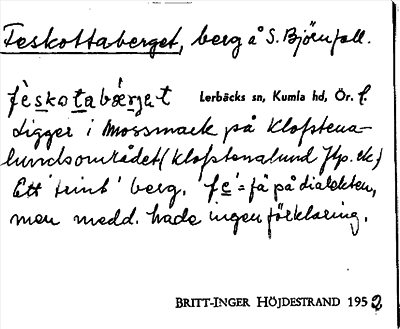 Feskottaberget, berg å S. Björnfall.
fèskotabǽrjet Lerbäcks sn, Kumla hd, Ör. l.
Ligger i Mossmark på Klofstena-
lundsområdet (Klofstenalund Hp. ek.)
Ett 'trint' berg. 'fe' = få på dialekten,
men medd. hade ingen förklaring.
BRITT-INGER HÖJDESTRAND 1952